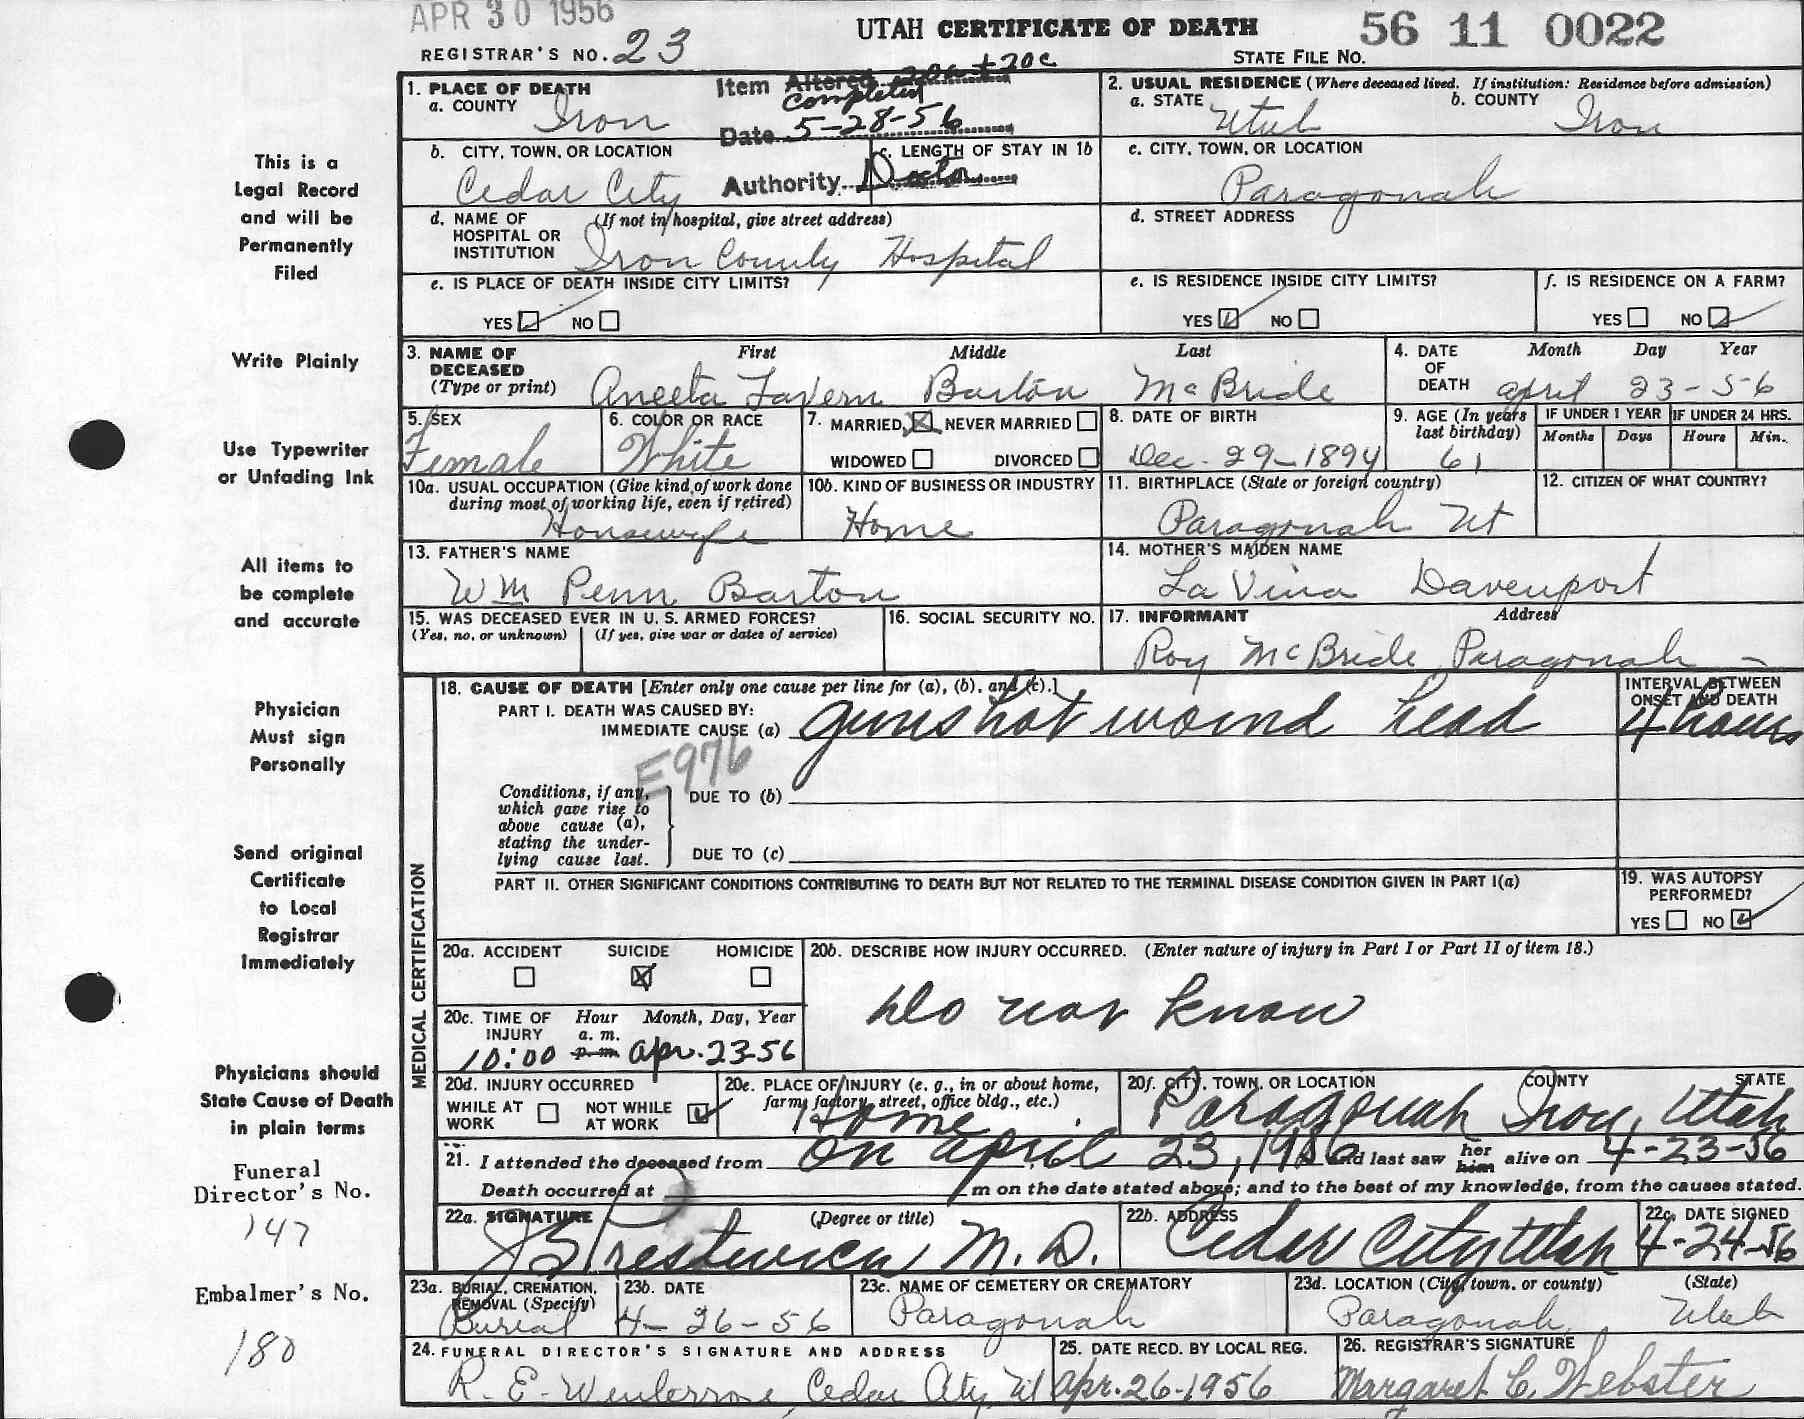 APR 30 1956
UTAH CERTIFICATE OF DEATH
56 11 0022
REGISTRAR'S NO. 23
STATE FILE NO.
Item Altered 20a + 20c
completed
Date 5-28-56
Authority Doctor
1. PLACE OF DEATH
a. COUNTY Iron
2. USUAL RESIDENCE (Where deceased lived. If institution: Residence before admission)
a. STATE Utah b. COUNTY Iron
b. CITY, TOWN, OR LOCATION
Cedar City
c. LENGTH OF STAY IN 1b
c. CITY, TOWN, OR LOCATION
Paragonah
d. NAME OF HOSPITAL OR INSTITUTION (If not in hospital, give street address)
Iron County Hospital
d. STREET ADDRESS
e. IS PLACE OF DEATH INSIDE CITY LIMITS?
YES NO
e. IS RESIDENCE INSIDE CITY LIMITS?
YES NO
f. IS RESIDENCE ON A FARM?
YES NO
3. NAME OF DECEASED (Type or print) First Middle Last
Aneeta LaVern Barton McBride
4. DATE OF DEATH Month Day Year
April 23-56
5. SEX
Female
6. COLOR OR RACE
White
7. MARRIED NEVER MARRIED
WIDOWED DIVORCED
8. DATE OF BIRTH
Dec. 29-1894
9. AGE (In years last birthday)
61
IF UNDER 1 YEAR IF UNDER 24 HRS.
Months Days Hours Min.
10a. USUAL OCCUPATION (Give kind of work done during most of working life, even if retired)
Housewife
10b. KIND OF BUSINESS OR INDUSTRY
Home
11. BIRTHPLACE (State or foreign country)
Paragonah Ut
12. CITIZEN OF WHAT COUNTRY?
13. FATHER'S NAME
Wm Penn Barton
14. MOTHER'S MAIDEN NAME
La Vina Davenport
15. WAS DECEASED EVER IN U. S. ARMED FORCES?
(Yes, no, or unknown) (If yes, give war or dates of service)
16. SOCIAL SECURITY NO.
17. INFORMANT Address
Roy McBride Paragonah
18. CAUSE OF DEATH [Enter only one cause per line for (a), (b), and (c).]
PART I. DEATH WAS CAUSED BY:
IMMEDIATE CAUSE (a) gunshot wound head
INTERVAL BETWEEN ONSET AND DEATH
4 hours
E976
Conditions, if any, which gave rise to above cause (a), stating the underlying cause last.
DUE TO (b)
DUE TO (c)
PART II. OTHER SIGNIFICANT CONDITIONS CONTRIBUTING TO DEATH BUT NOT RELATED TO THE TERMINAL DISEASE CONDITION GIVEN IN PART I(a)
19. WAS AUTOPSY PERFORMED?
YES NO
20a. ACCIDENT SUICIDE HOMICIDE
20b. DESCRIBE HOW INJURY OCCURRED. (Enter nature of injury in Part I or Part II of item 18.)
Do not know
20c. TIME OF INJURY Hour a. m. p. m. Month, Day, Year
10:00 Apr. 23-56
20d. INJURY OCCURRED
WHILE AT WORK NOT WHILE AT WORK
20e. PLACE OF INJURY (e. g., in or about home, farm, factory, street, office bldg., etc.)
Home
20f. CITY, TOWN, OR LOCATION COUNTY STATE
Paragonah Iron, Utah
21. I attended the deceased from on April 23, 1956 and last saw her him alive on 4-23-56
Death occurred at m on the date stated above; and to the best of my knowledge, from the causes stated.
22a. SIGNATURE (Degree or title)
M. D.
22b. ADDRESS
Cedar City Utah
22c. DATE SIGNED
4-24-56
23a. BURIAL, CREMATION, REMOVAL (Specify)
Burial
23b. DATE
4-26-56
23c. NAME OF CEMETERY OR CREMATORY
Paragonah
23d. LOCATION (City, town, or county) (State)
Paragonah Utah
24. FUNERAL DIRECTOR'S SIGNATURE AND ADDRESS
R. E. Cedar City, Ut
25. DATE RECD. BY LOCAL REG.
Apr. 26-1956
26. REGISTRAR'S SIGNATURE
Margaret C. Webster
MEDICAL CERTIFICATION
This is a
Legal Record
and will be
Permanently
Filed
Write Plainly
Use Typewriter
or Unfading Ink
All items to
be complete
and accurate
Physician
Must sign
Personally
Send original
Certificate
to Local
Registrar
Immediately
Physicians should
State Cause of Death
in plain terms
Funeral
Director's No.
147
Embalmer's No.
180